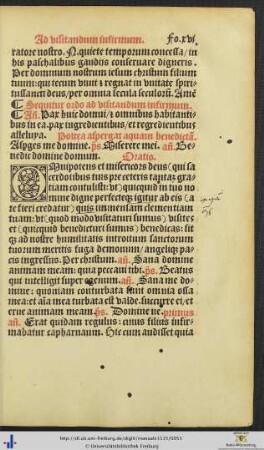 Ad visitandum infirmum. Fo.xvi
ratore nostro. N. quiete temporum concessa/ in
his paschalibus gaudiis conseruare digneris.
Per dominum nostrum iesum christum filium
tuum: qui tecum viuit & regnat in vnitate spiri-
tussancti deus/ per omnia secula seculorū. Amē
Sequitur ordo ad visitandum infirmum.
Añ. Pax huic domui/ & omnibus habitanti-
bus in ea. pax ingredientibus/ et egredientibus
alleluya. Postea aspergat aquam benedictā.
Aspges me domine. ps̄. Miserere mei. añ. Be-
nedic domine domum. Oratio.
OMnipotens et misericors deus (qui sa
cerdotibus tuis pre ceteris tantaȝ gra-
tiam contulisti: vt/ quicquid in tuo no
mine digne perfecteqȝ igitur ab eis (a
te fieri credatur) quis immensam clementiam
tuam: vt (quod modo visitaturi sumus) visites
et (quicquid benedicturi sumus) benedicas: sit
qȝ ad nostre humilitatis introitum sanctorum
tuorum meritis fuga demonum/ angeliqȝ pa-
cis ingressus. Per christum. añ. Sana domine
animam meam: quia peccaui tibi. ps̄. Beatus
qui intelligit super egenum. añ. Sana me do-
mine: quoniam conturbata sunt omnia ossa
mea: et aīa mea turbata est valde. succurre ei/ et
erue animam meam. ps̄. Domine ne. primus
añ. Erat quidam regulus: cuius filius infir-
mabatur capharnaum. Hic cum audisset quia
http://dl.ub.uni-freiburg.de/diglit/manuale1521/0051
© Universitätsbibliothek Freiburg